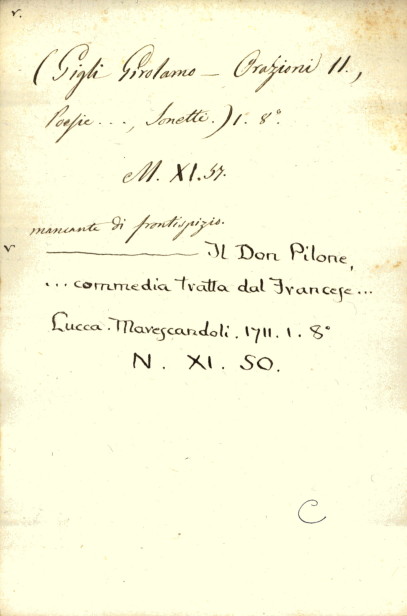 v.
(Gigli Girolamo — Orazioni II.,
Poesie..., Sonetti.) 1. 8°.
M. XI. 57.
mancante di frontispizio.
v ———— Il Don Pilone,
...commedia tratta dal Francese...
Lucca. Marescandoli. 1711. 1. 8°
N. XI. 50.
C